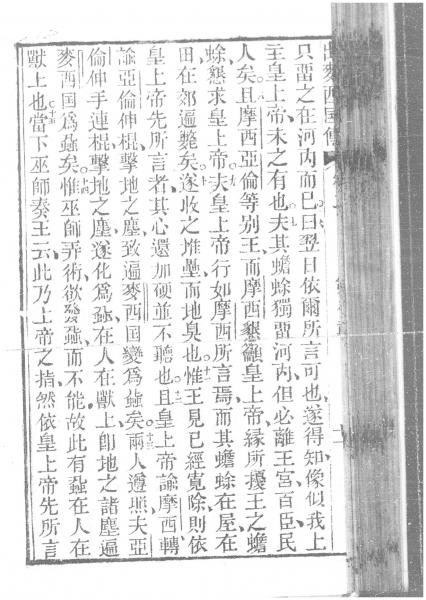 只畱之在河内而已曰翌日依爾所言可也遂得知像似我上
主皇上帝未之有也夫其蟾蜍獨畱河内但必離王宮百臣民
人矣且摩西亞倫等别王而摩西懇籲皇上帝緣所擾王之蟾
蜍懇求皇上帝夫皇上帝行如摩西所言焉而其蟾蜍在屋在
田在郊遍斃矣遂收之堆壘而地臭也惟王見已經寬除則依
皇上帝先所言者其心還加硬並不聽也且皇上帝諭摩西轉
諭亞倫伸棍擊地之塵致遍麥西国變為蝨矣兩人遵照夫亞
倫伸手連棍擊地之塵遂化為蝨在人在獸上卽地之諸塵遍
麥西国為蝨矣惟巫師弄術欲發蝨而不能故此有蝨在人在
獸上也當下巫師奏王云此乃上帝之指然依皇上帝先所言